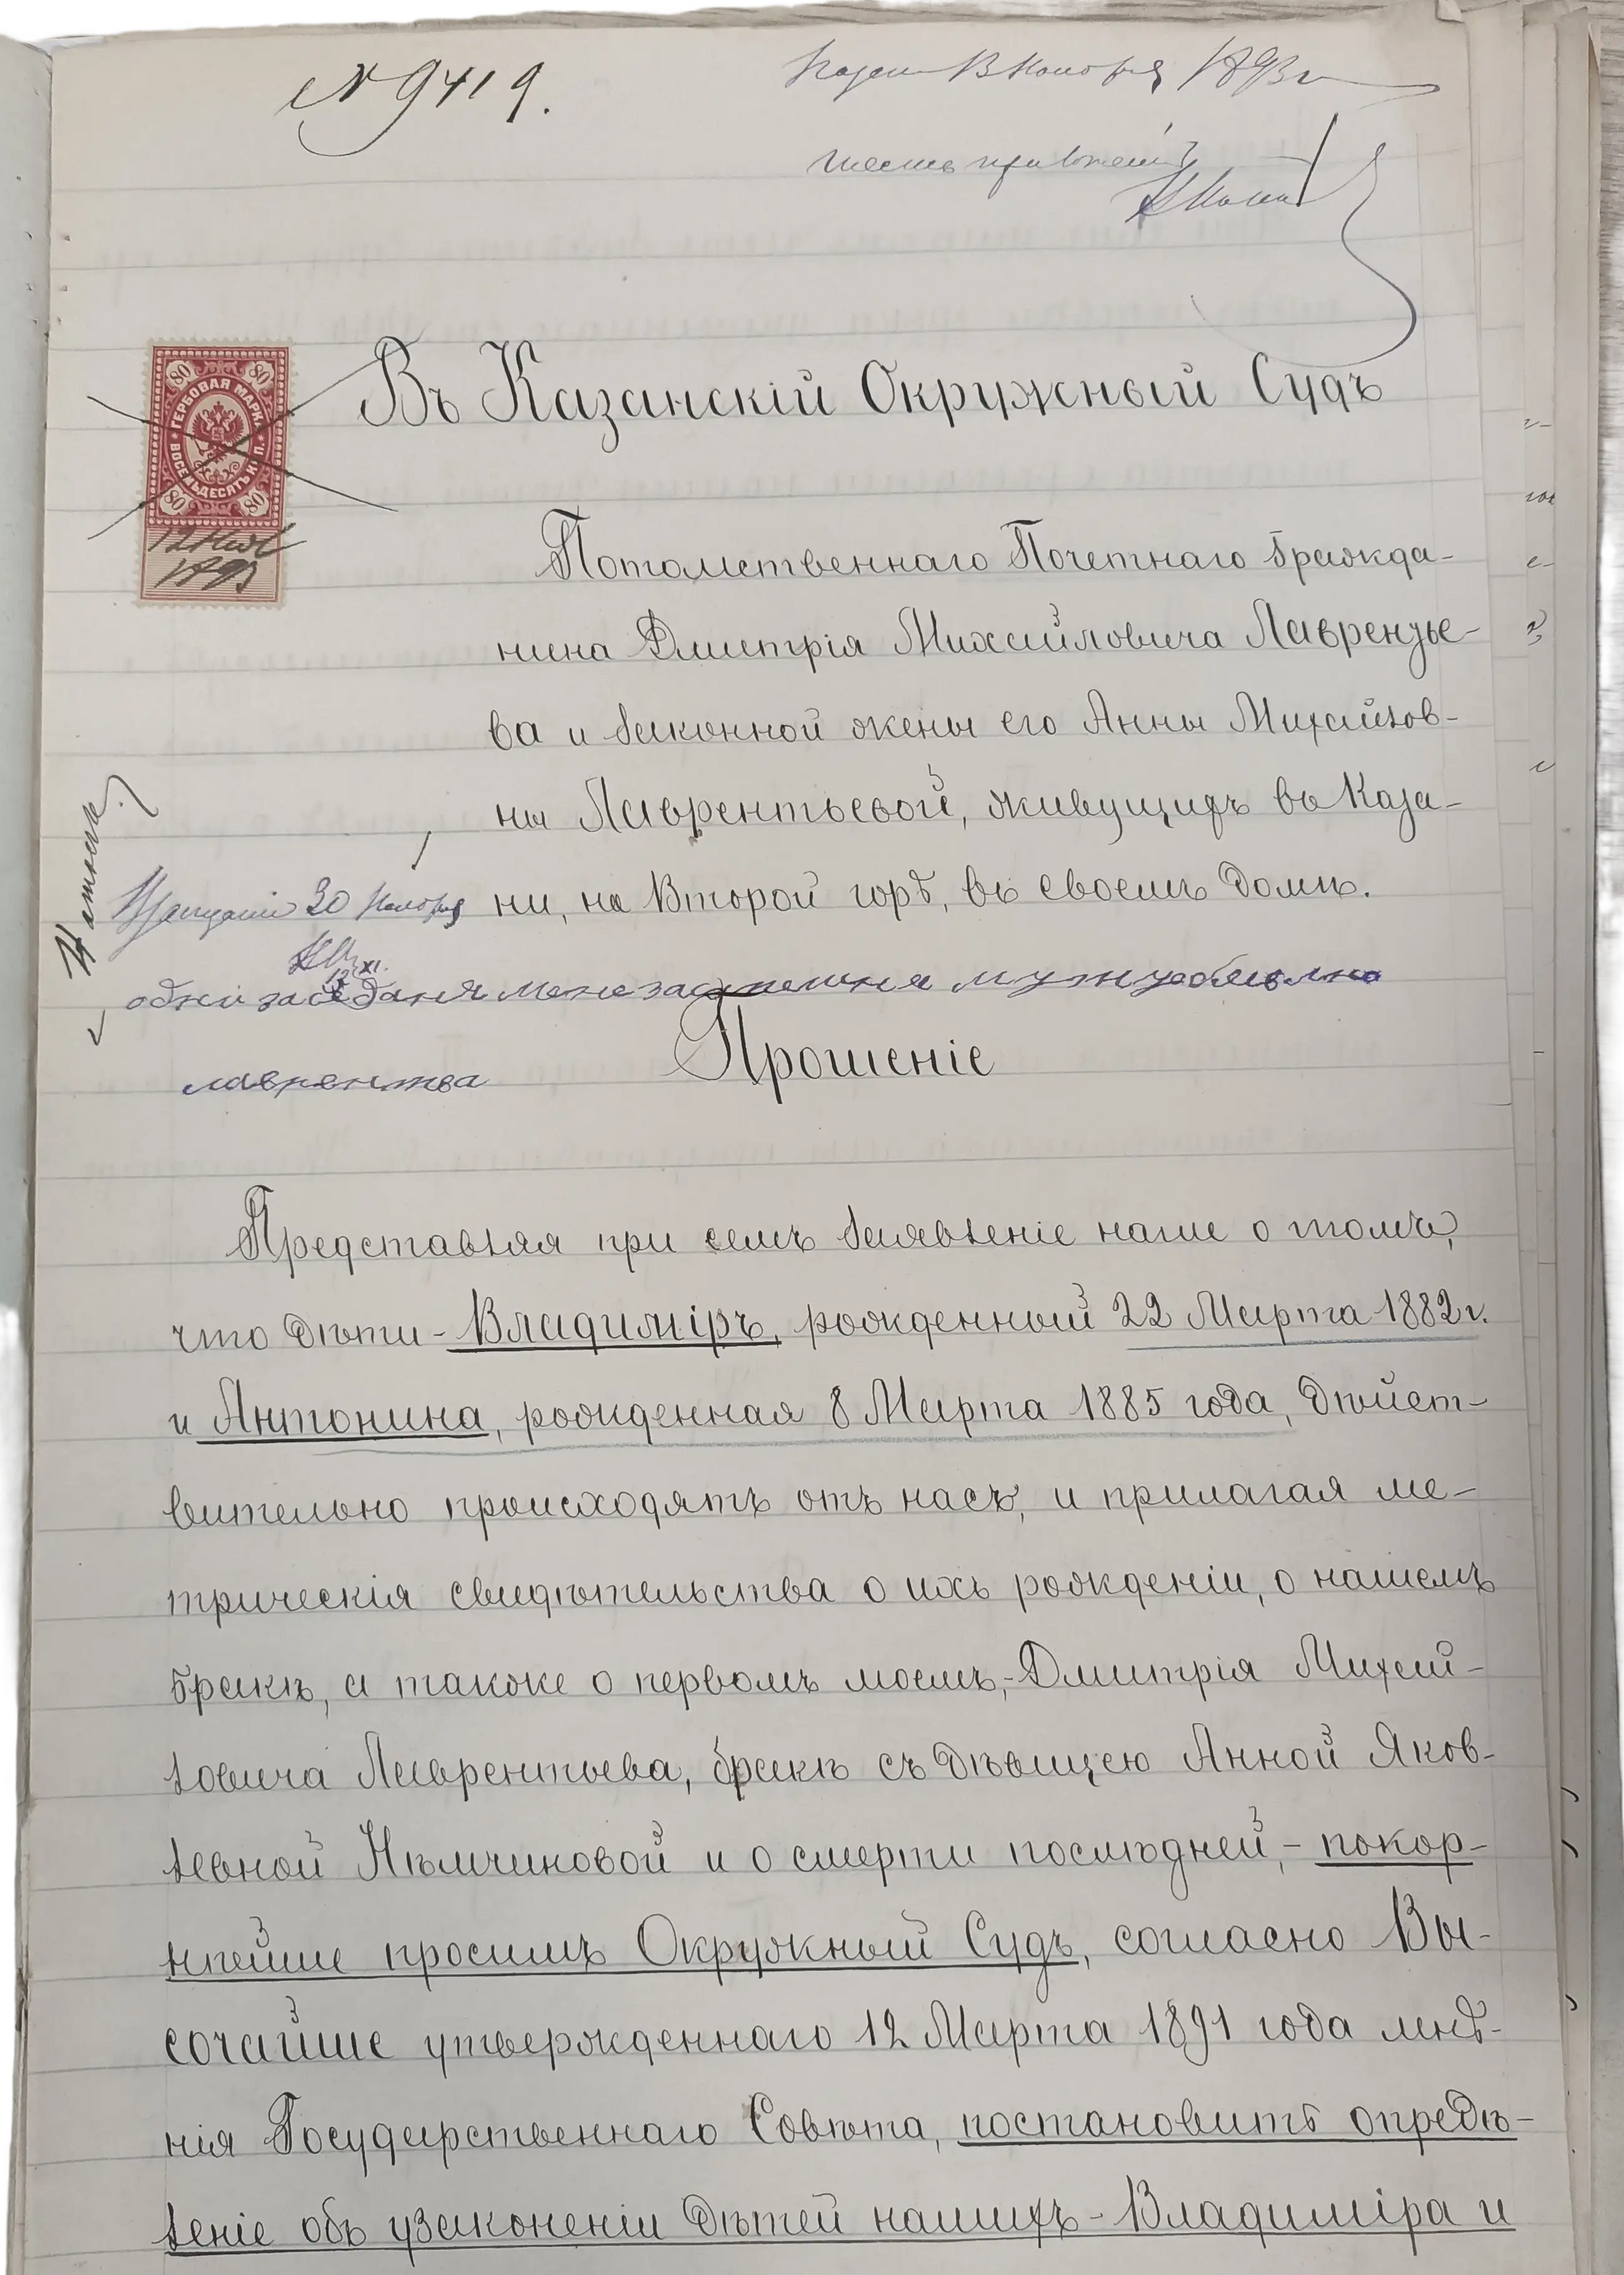 № 9419.
13 Ноября 1893 г.
80 80
ГЕРБОВАЯ МАРКА
ВОСЕМЬДЕСЯТЪ К П.
80 80
12 Нояб
1893
Въ Казанскій Окружный Судъ
Потомственнаго Почетнаго Гражда-
нина Дмитрія Михайловича Лавренть-
ва и законной жены его Анны Михайлов-
ны Лаврентьевой, живущихъ въ Каза-
ни, на Второй горѣ, въ своемъ домѣ.
30 Ноября
XI.
одни заседаня мене мужу
Прошеніе
Представляя при семъ заявленіе наше о томъ,
что дѣти - Владиміръ, рожденный 22 Марта 1882 г.
и Антонина, рожденная 8 Марта 1885 года, дѣйст-
вительно происходятъ отъ насъ, и прилагая ме-
трическія свидѣтельства о ихъ рожденіи, о нашемъ
бракѣ, а также о первомъ моемъ,- Дмитрія Михай-
ловича Лаврентьева, бракѣ съ дѣвицею Анной Яков-
левной Нѣмчиновой и о смерти послѣдней,- покор-
нѣйше просимъ Окружный Судъ, согласно Вы-
сочайше утвержденнаго 12 Марта 1891 года мнѣ-
нія Государственнаго Совѣта, постановить опредѣ-
леніе объ узаконеніи дѣтей нашихъ - Владиміра и